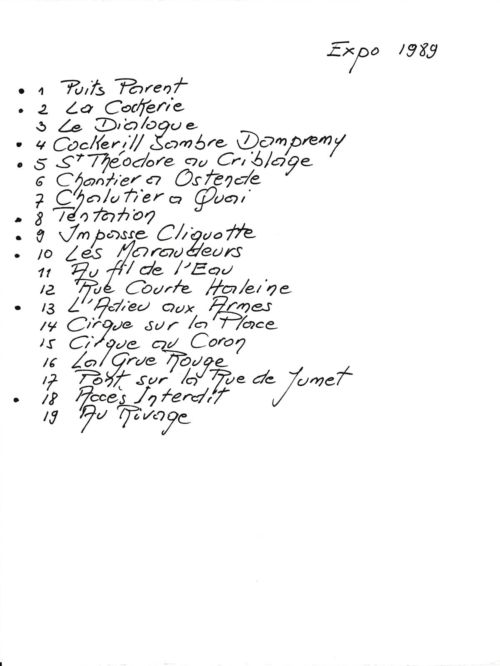 Expo 1989
• 1 Puits Parent
• 2 La Cokerie
3 Le Dialogue
• 4 Cockerill Sambre Dampremy
• 5 St Théodore au Criblage
6 Chantier a Ostende
7 Chalutier a Quai
• 8 Tentation
• 9 Impasse Cliquotte
• 10 Les Maraudeurs
11 Au fil de l'Eau
12 Rue Courte Haleine
• 13 L'Adieu aux Armes
14 Cirque sur la Place
15 Cirque au Coron
16 La Grue Rouge
17 Pont sur la Rue de Jumet
• 18 Accès Interdit
19 Au Rivage